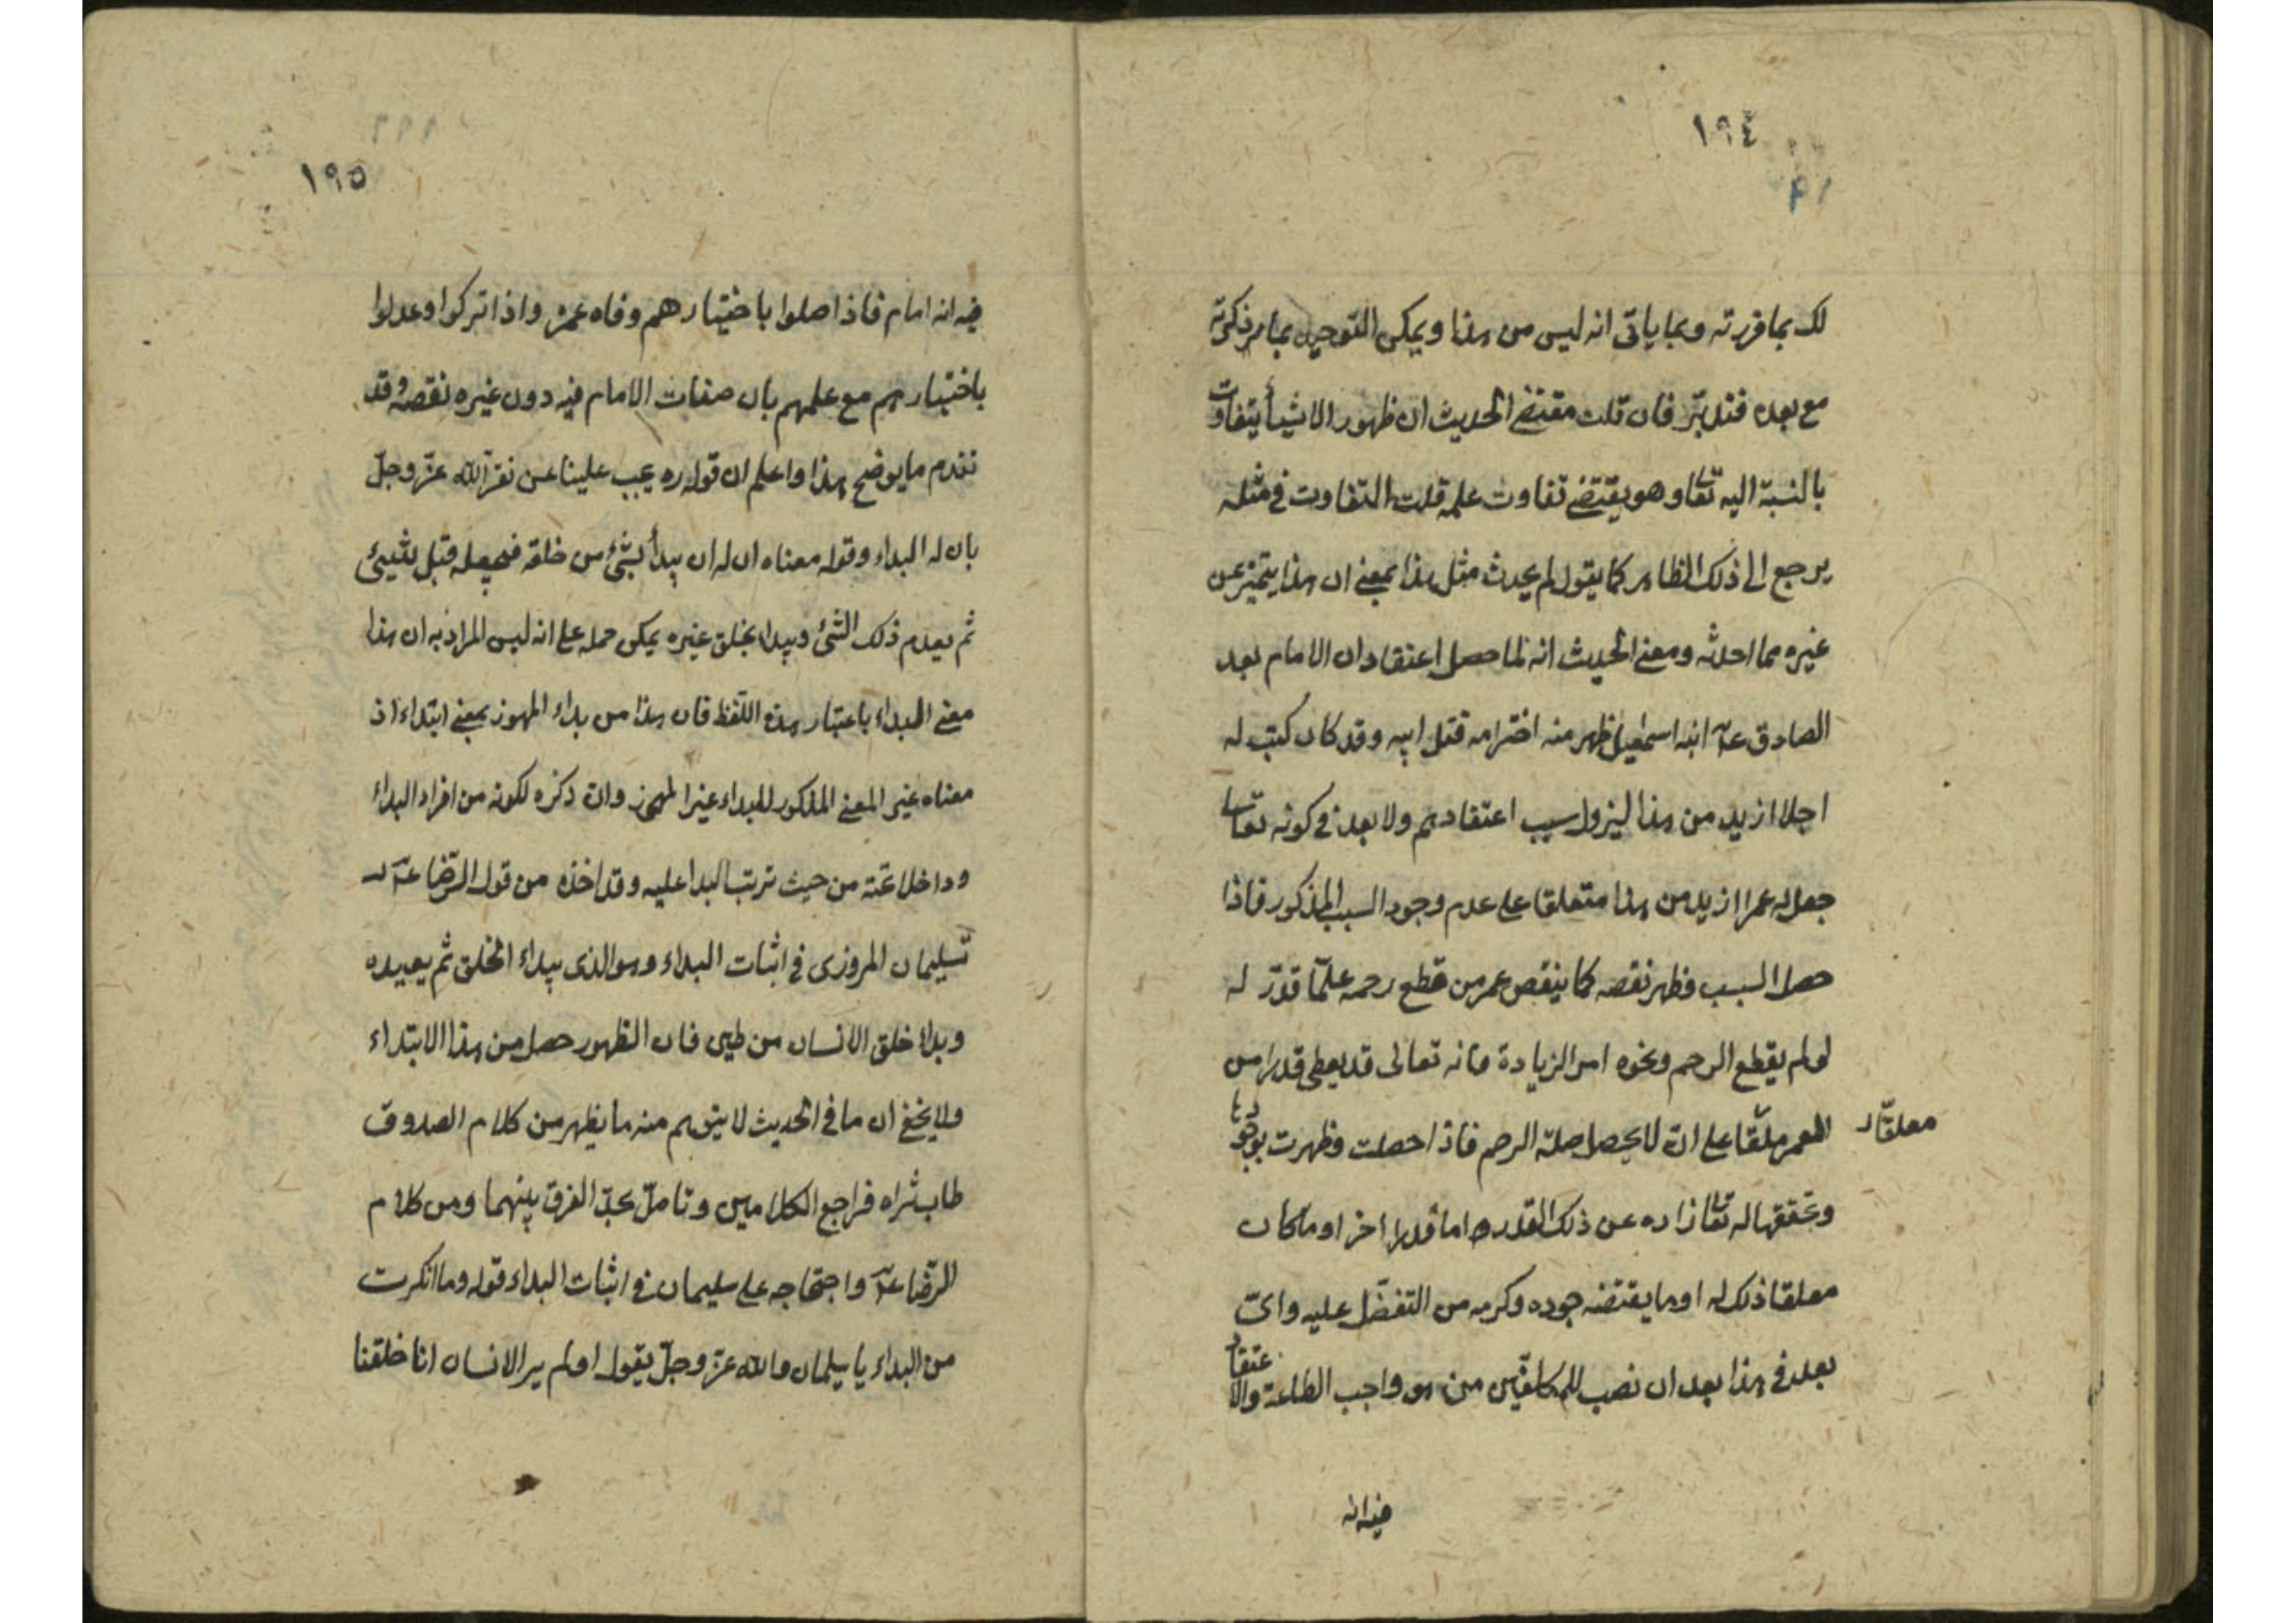 ١٩٤
لك بما قررته وبما ياتى انه ليس من هذا ويمكن التوجيه بما مر ذكرته
مع بعده فتدبّر فان قلت مقتضے الحديث ان ظهور الاشيأ يتفاوت
بالنسبة اليه تعا وهو يقتضے تفاوت علمه قلت التفاوت فى مثله
يرجع الى ذلك الظاهر كما يقول لم يحدث مثل هذا بمعنے ان هذا يتميّز عن
غيره مما احدثه ومعنے الحديث انه لما حصل اعتقاد ان الامام بعد
الصادق عۤ ابنه اسمعيل ظهر منه اخترامه قبل ابيه وقد كان كتب له
اجلا ازيد من هذا ليزول سبب اعتقادهم ولا بعد فے كونه تعا
جعل له عمرا ازيد من هذا متعلقا على عدم وجود السبب المذكور فاذا
حصل السبب فظهر نقصه كما ينقص عمر من قطع رحمه عمّا قدّر له
لو لم يقطع الرحم ونحوه امر الزيادة فانه تعالى قد يعطى قدرا من
العمر ملقا على ان لا يحصل صلة الرحم فاذا حصلت وظهرت بوجودها
معلقًا
وتحققها له تعا زاده عن ذلك القدر اما قدرا اخر او ما كان
معلقا ذلك له او ما يقتضه جوده وكرمه من التفضّل عليه واىّ
بعد فى هذا بعد ان نصب للمكلفين من هو واجب الطاعة والاعتقاد
فيه انه
١٩٥
فيه انه امام فاذا صلوا باختيارهم وفاه عمره واذا تركوا وعدلوا
باختيارهم مع علمهم بان صفات الامام فيه دون غيره نقصه وقد
تقدم ما يوضح هذا واعلم ان قوله ره يجب علينا عن نقر لله عزّ وجلّ
بان له البداء وقوله معناه ان له ان يبدأ بشئ من خلقه فيجعله قبل شيئ
ثم يعدم ذلك الشئ ويبداء بخلق غيره يمكن حمله على انه ليس المراد به ان هذا
معنے البداء باعتبار هذه اللفظ فان هذا من بداء المهموز بمعنے ابتداء اذ
معناه غير المعنے المذكور للبداء غير المهموز وان ذكره لكونه من افراد البداء
وداخلا تحته من حيث ترتب البدا عليه وقد اخذه من قول الرّضا عۤ لـ
سليمان المروزى فى اثبات البداء وهو الذى يبداء الخلق ثم يعيده
وبداء خلق الانسان من طين فان الظهور حصل من هذا الابتداء
ولا يخفے ان ما فى الحديث لا يتوهم منه ما يظهر من كلام الصدوق
طاب ثراه فراجع الكلامين وتامّل تجد الفرق بينهما ومن كلام
الرّضا عۤ واحتجاجه على سليمان فے اثبات البداء قوله وما انكرت
من البداء يا سليمان والله عزّ وجلّ يقول اولم ير الانسان انا خلقنا